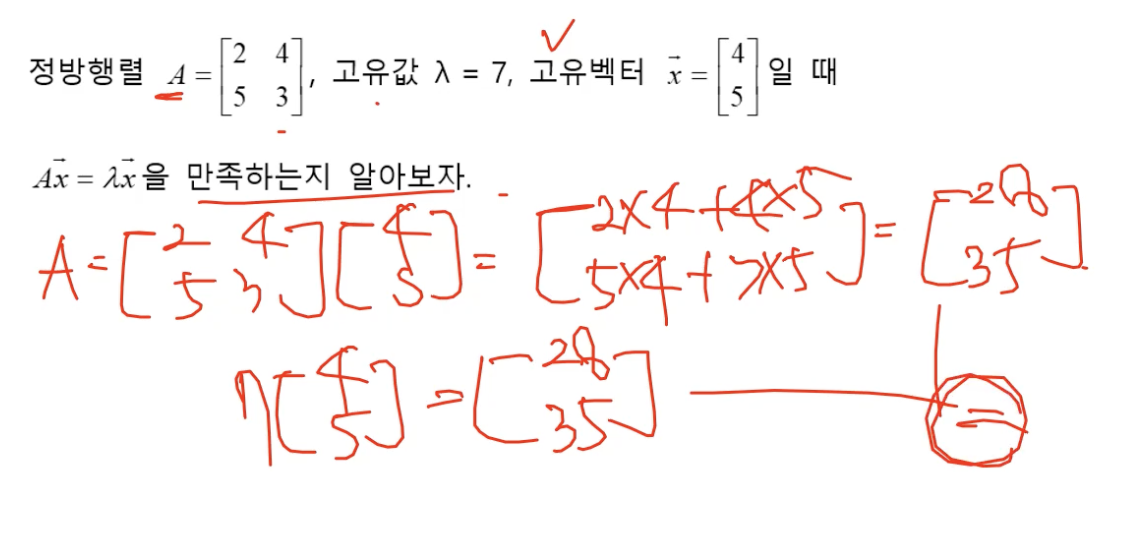 정방행렬 A = [2 4; 5 3], 고유값 λ = 7, 고유벡터 x⃗ = [4; 5] 일 때
Ax⃗ = λx⃗ 을 만족하는지 알아보자.
A = [2 4; 5 3] [4; 5] = [2×4+4×5; 5×4+3×5] = [28; 35]
7 [4; 5] = [28; 35] =